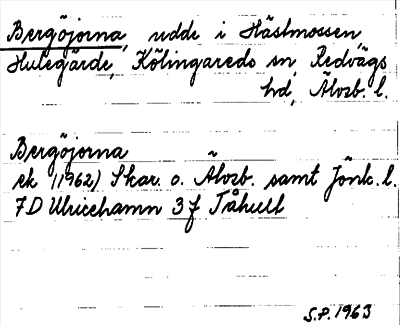 Bergöjorna, udde i Hästmossen,
Hulegärde, Kölingareds sn, Redvägs
hd, Älvsb. l.
Bergöjorna
ek (1962) Skar. o. Älvsb. samt Jönk. l.
7D Ulricehamn 3f Tåhult
S.P. 1963